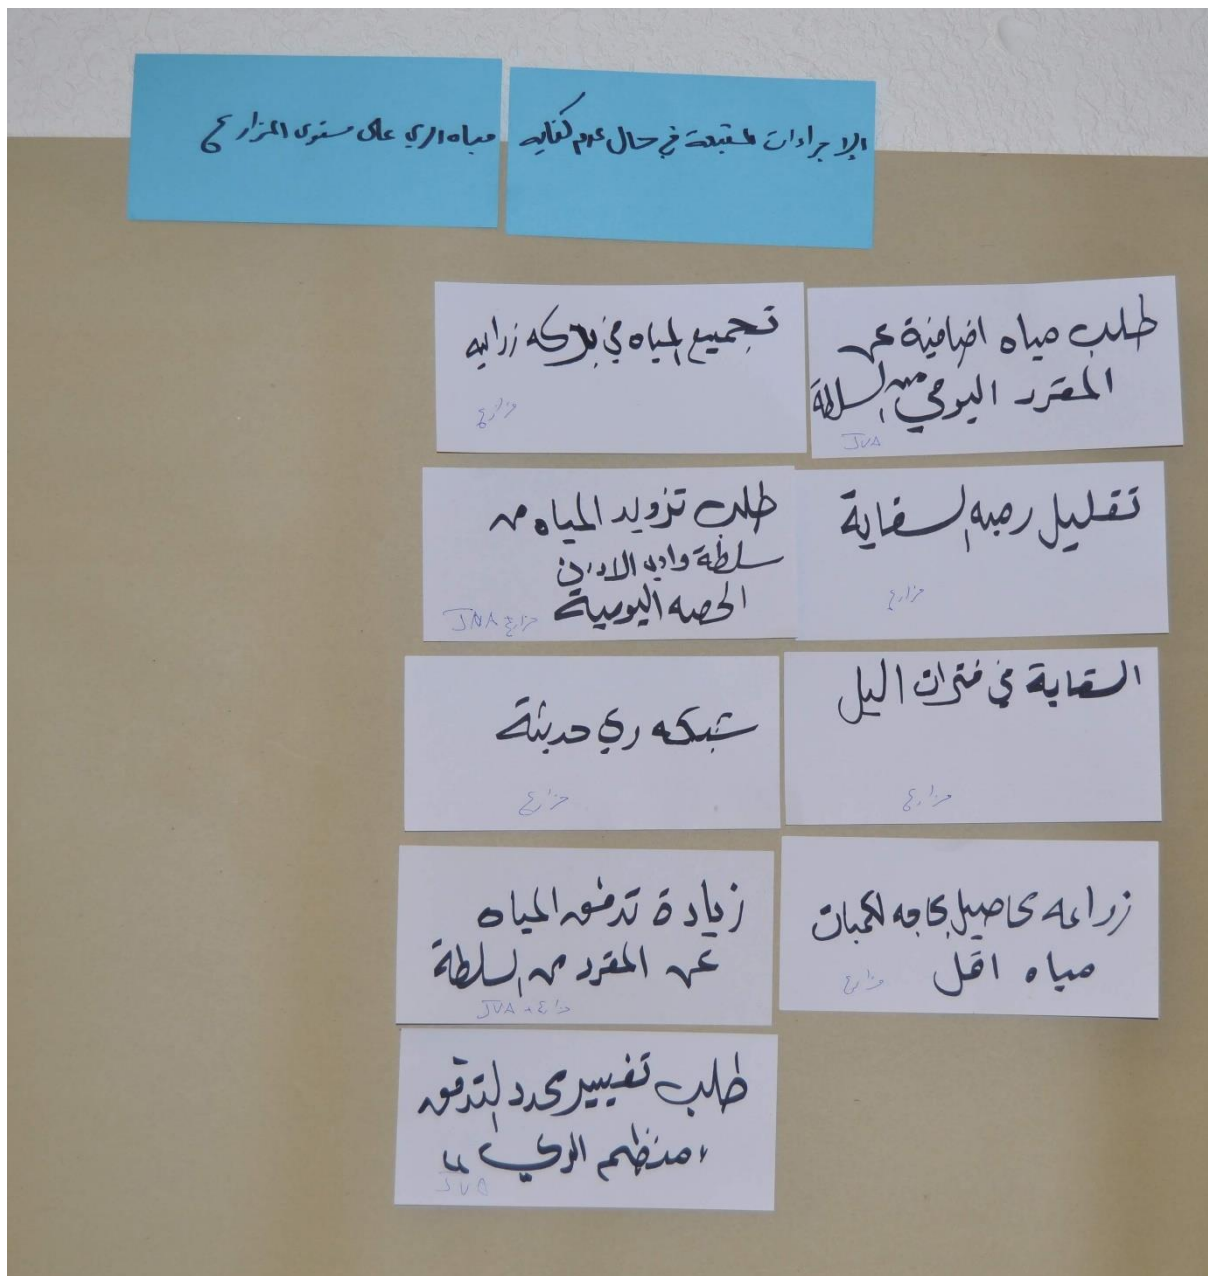 الإجراءات المتبعة في حال عدم كفايه
مياه الري على مستوى المزارع
طلب مياه اضافية عن
المقرر اليومي من السلطة
JVA
تجميع المياه في بركه زراعيه
مزارع
تقليل رجبه السقاية
مزارع
طلب تزويد المياه من
سلطة وادي الاردن
الحصه اليومية
مزارع JVA
السقاية في فترات اليل
مزارع
شبكه ري حديثة
مزارع
زراعه محاصيل بحاجه لكميات
مياه اقل
مزارع
زيادة تدفق المياه
عن المقرر من السلطة
مزارع + JVA
طلب تغيير محدد التدفق
منظم الري
JVA